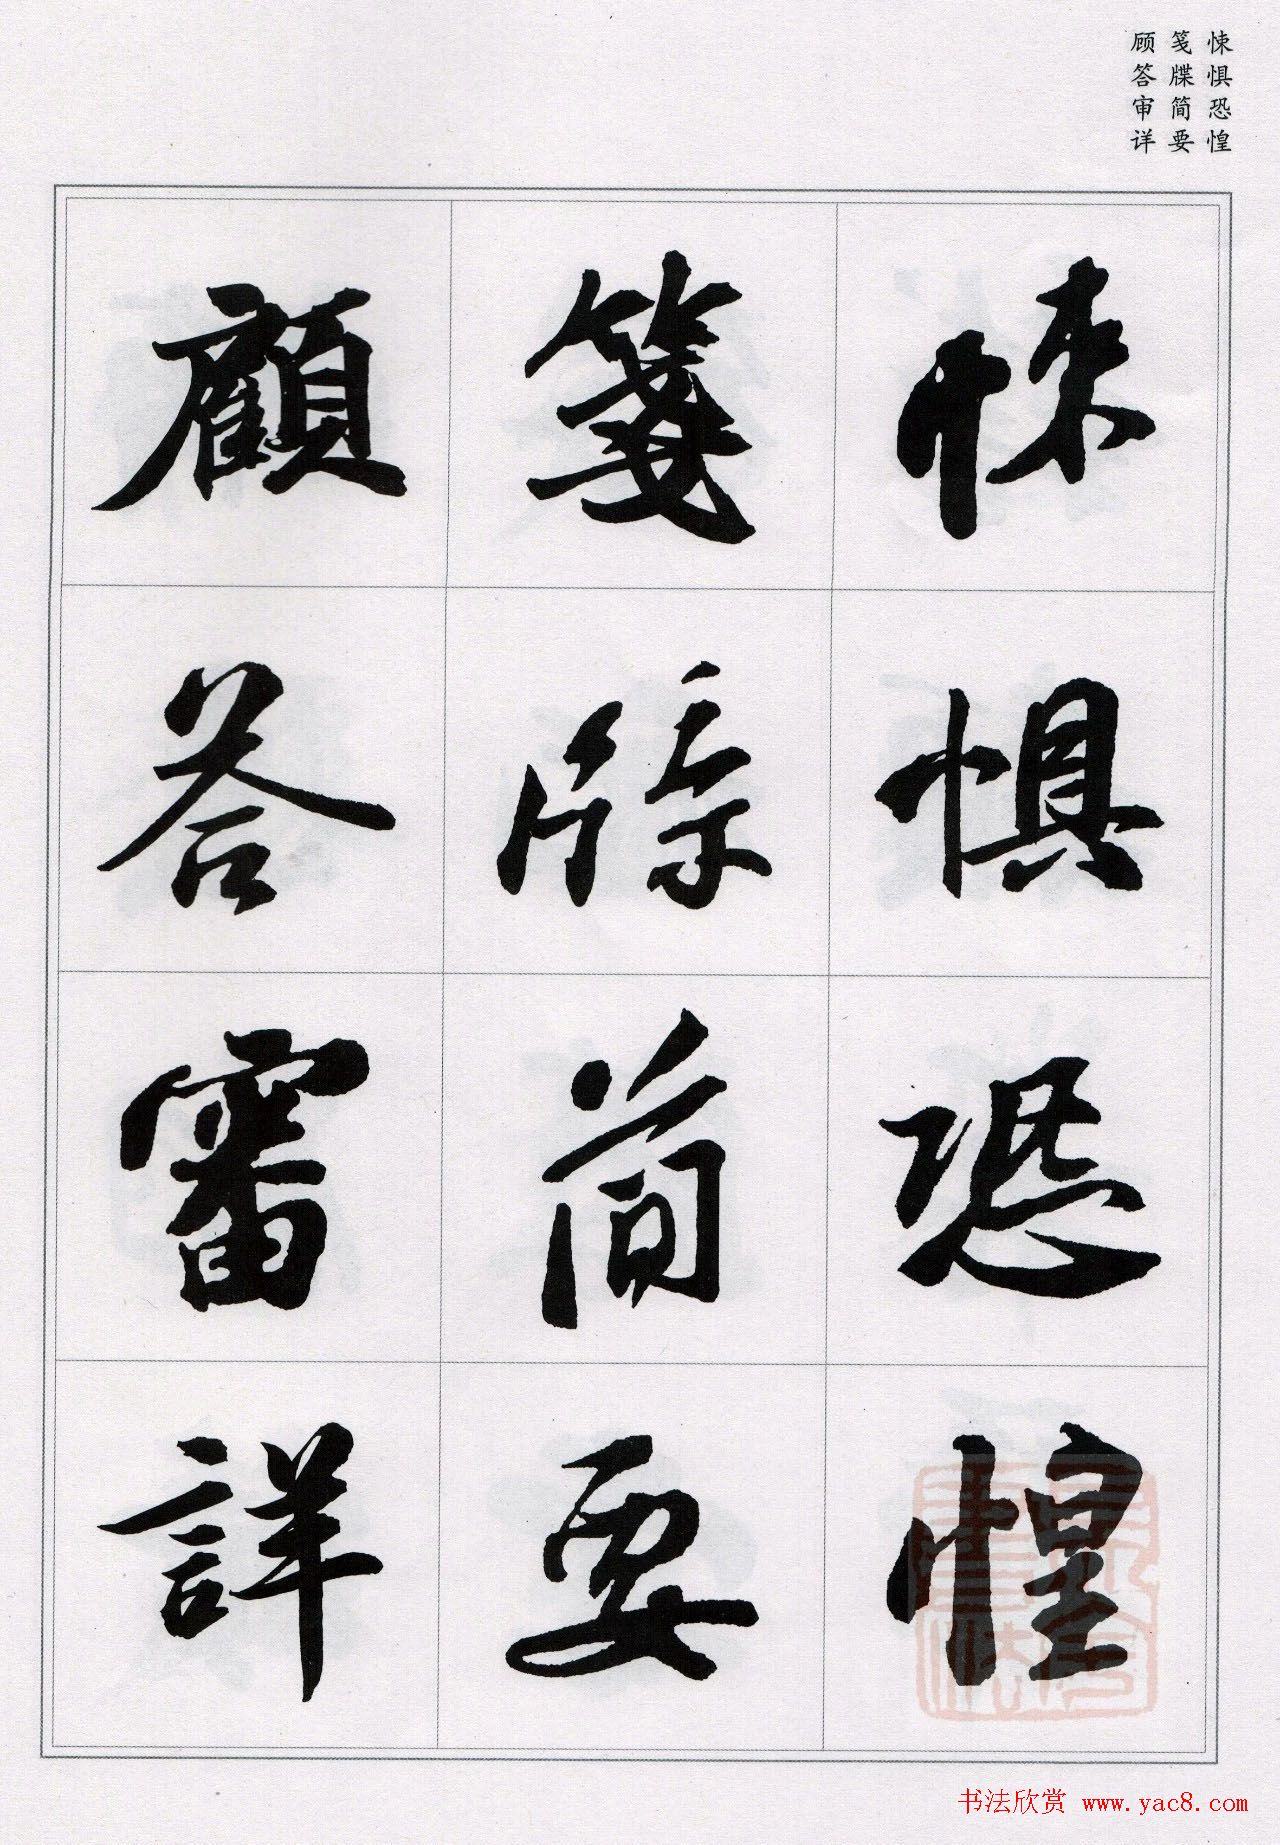 悚惧恐惶
笺牒简要
顾答审详
悚懼恐惶
箋牒簡要
顧答審詳
书法欣赏 www.yac8.com